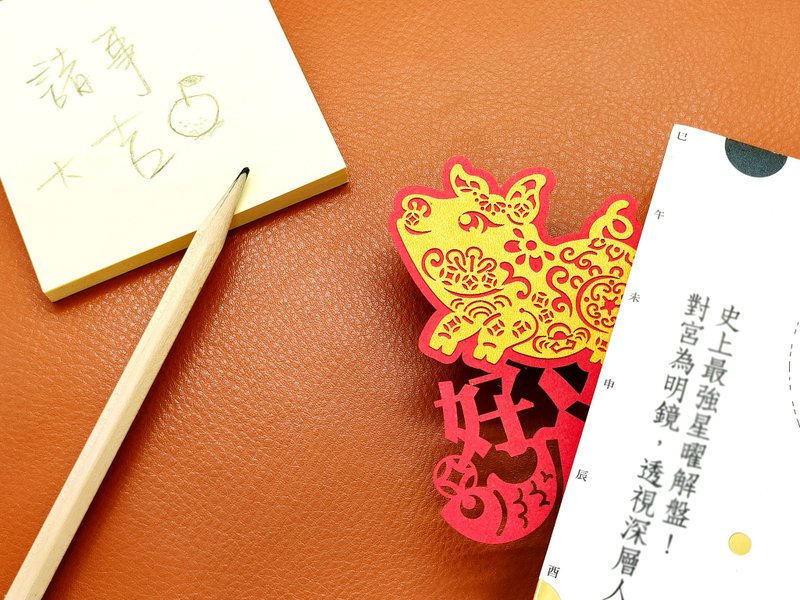 諸事
大吉
好
巳
午
未
申
辰
酉
史上最強星曜解盤！
對宮為明鏡，透視深層人